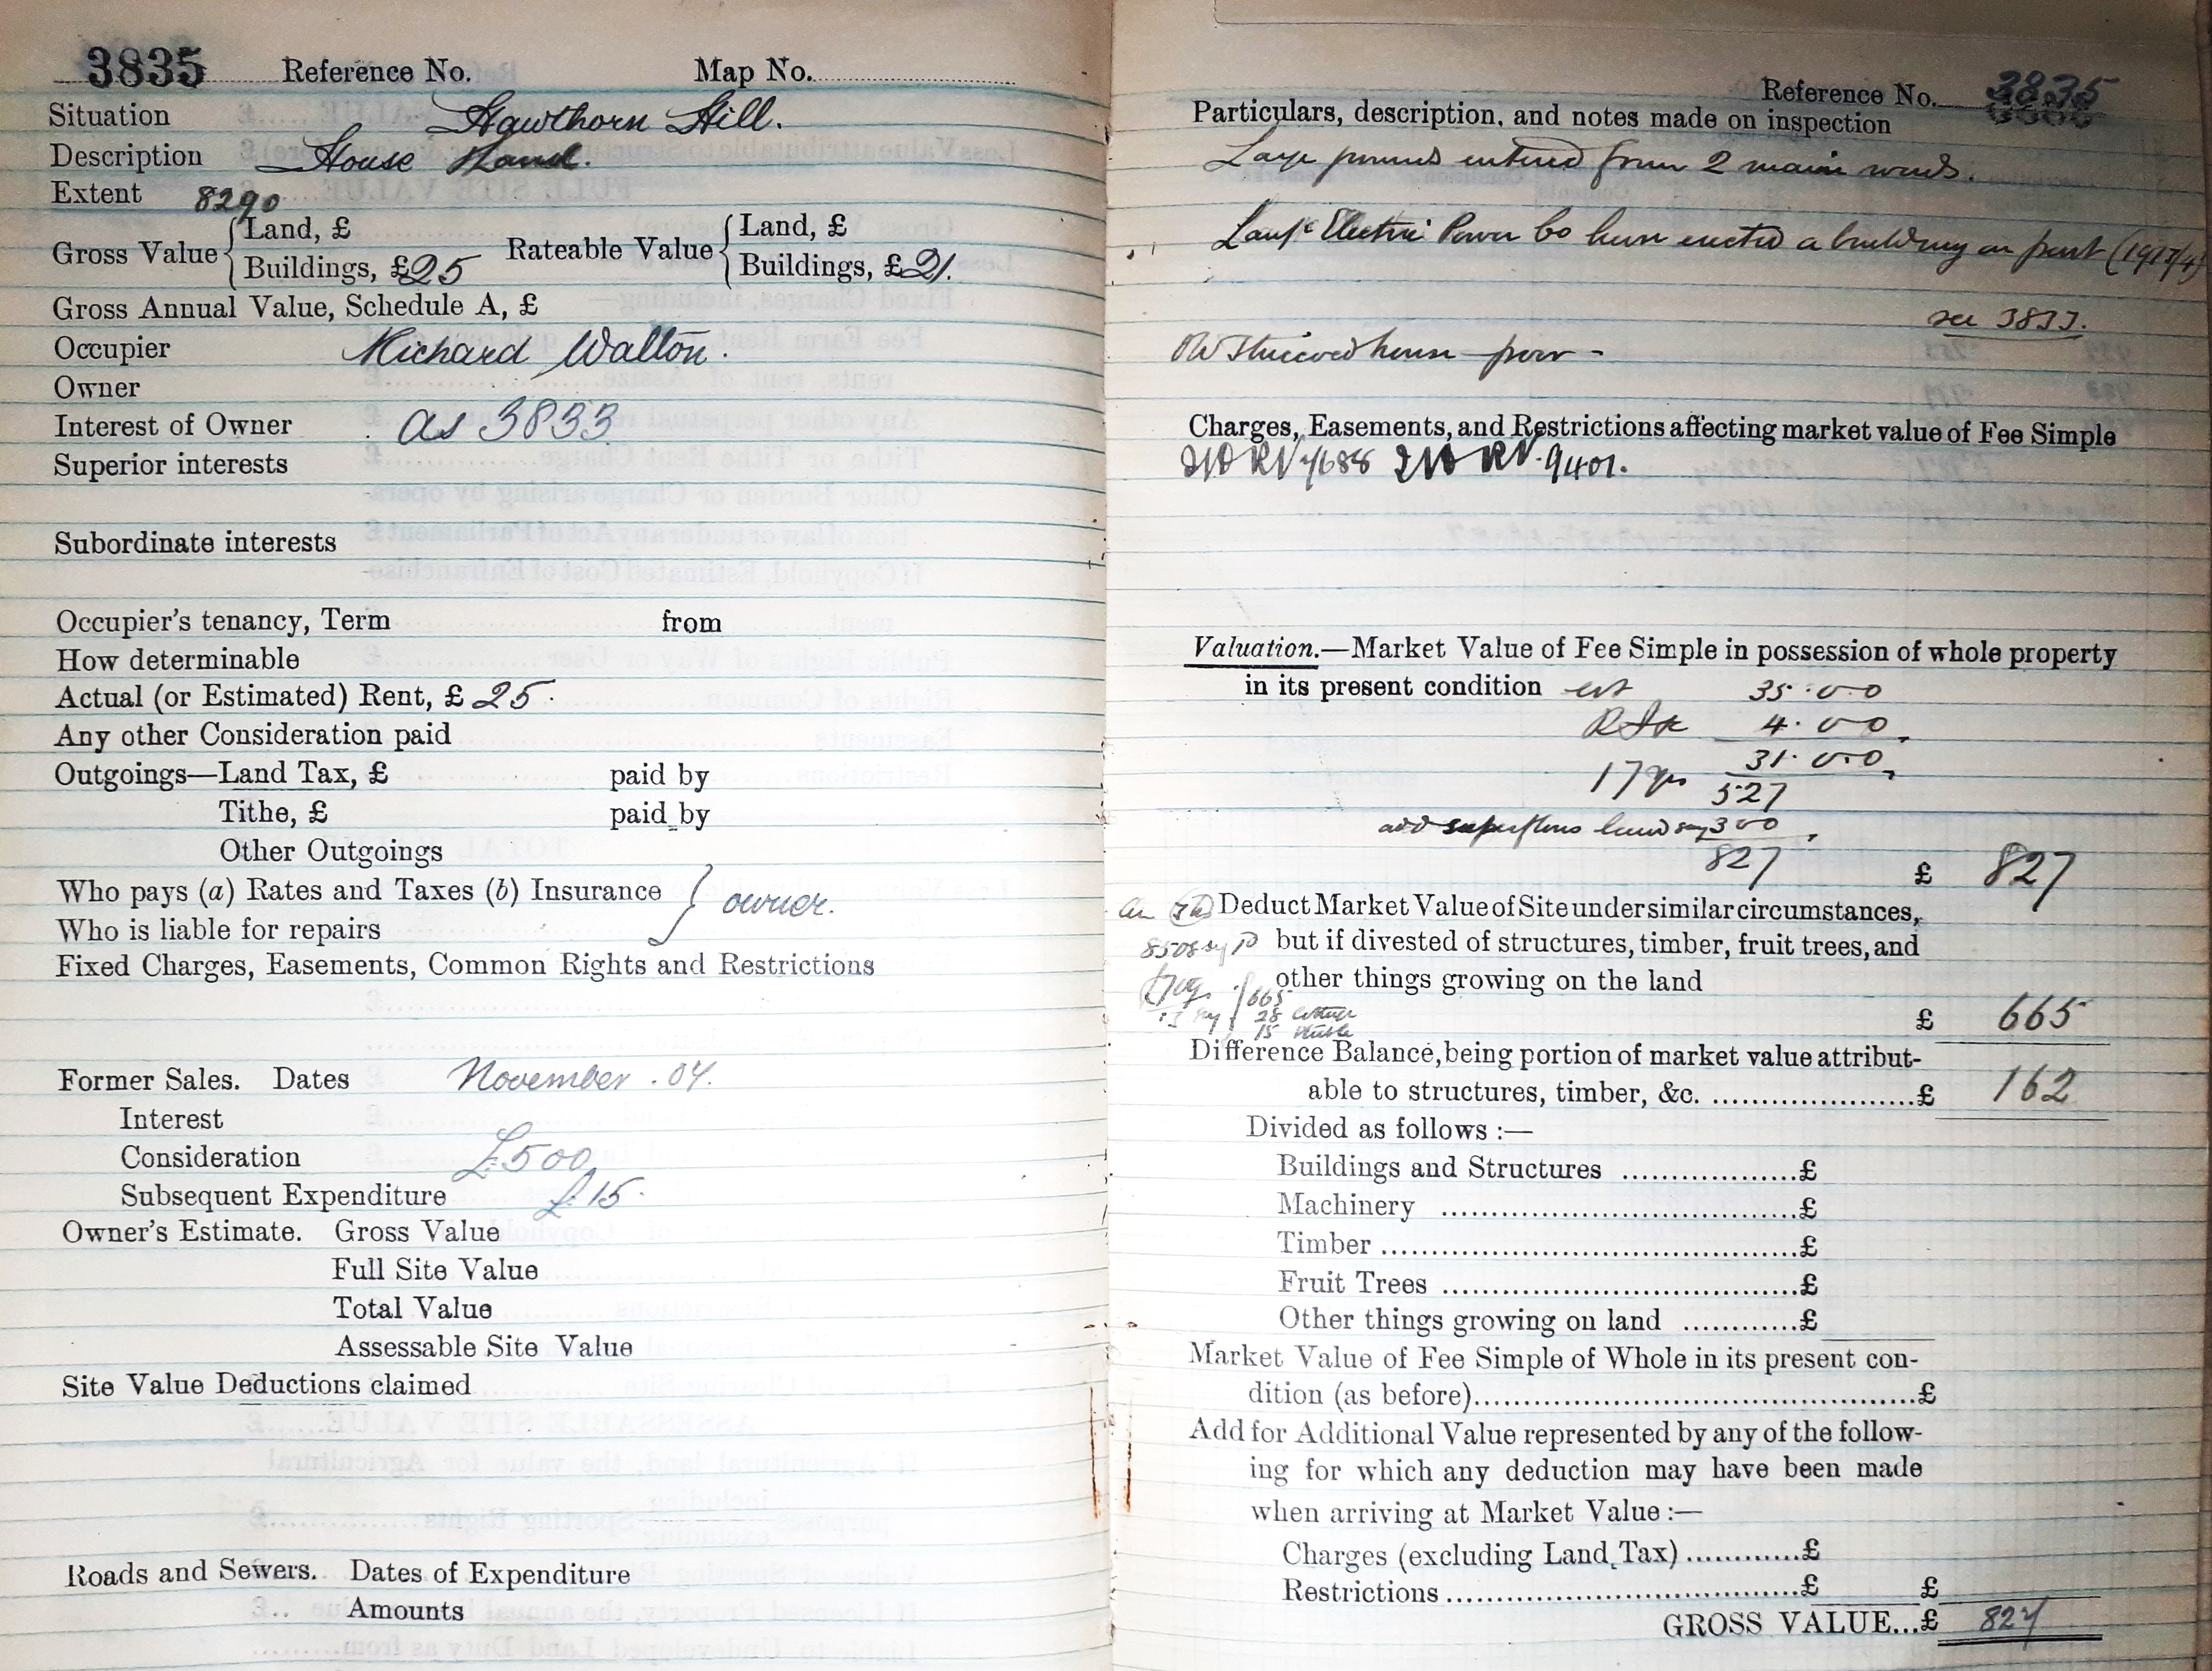 3835 Reference No. Map No.
Situation Hawthorn Hill.
Description House Land.
Extent 8290
Gross Value { Land, £ Rateable Value { Land, £
Buildings, £25 Buildings, £21.
Gross Annual Value, Schedule A, £
Occupier Richard Walton.
Owner
Interest of Owner as 3833
Superior interests
Subordinate interests
Occupier's tenancy, Term from
How determinable
Actual (or Estimated) Rent, £ 25.
Any other Consideration paid
Outgoings—Land Tax, £ paid by
Tithe, £ paid by
Other Outgoings
Who pays (a) Rates and Taxes (b) Insurance } owner.
Who is liable for repairs
Fixed Charges, Easements, Common Rights and Restrictions
Former Sales. Dates November .04.
Interest
Consideration £500
Subsequent Expenditure £15.
Owner's Estimate. Gross Value
Full Site Value
Total Value
Assessable Site Value
Site Value Deductions claimed
Roads and Sewers. Dates of Expenditure
Amounts
Reference No. 3835
Particulars, description, and notes made on inspection
Large entered from 2 main
Electric Power Co have erected a building on part
see 3833.
house poor -
Charges, Easements, and Restrictions affecting market value of Fee Simple
9401.
Valuation.—Market Value of Fee Simple in possession of whole property
in its present condition est 35.0.0
4.0.0
31.0.0
17 yrs 527
add superflous land say 300
827 £ 827
Deduct Market Value of Site under similar circumstances,
8508 say but if divested of structures, timber, fruit trees, and
other things growing on the land
665
28
15
£ 665
Difference Balance, being portion of market value attribut-
able to structures, timber, &c. ........£ 162
Divided as follows :—
Buildings and Structures ........£
Machinery ........£
Timber ........£
Fruit Trees ........£
Other things growing on land ........£
Market Value of Fee Simple of Whole in its present con-
dition (as before)........£
Add for Additional Value represented by any of the follow-
ing for which any deduction may have been made
when arriving at Market Value :—
Charges (excluding Land Tax) ........£
Restrictions ........£ £
GROSS VALUE...£ 827